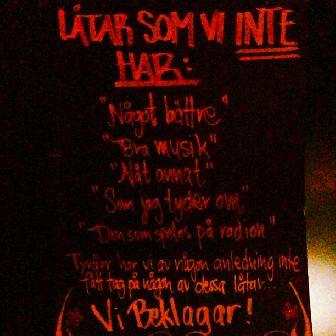 LÅTAR SOM VI INTE
HAR:
"Något bättre"
"Bra musik"
"Nåt annat"
"Som jag tycker om"
"Den som spelas på radion"
Tyvärr har vi av någon anledning inte
fått tag på någon av dessa låtar...
Vi Beklagar!